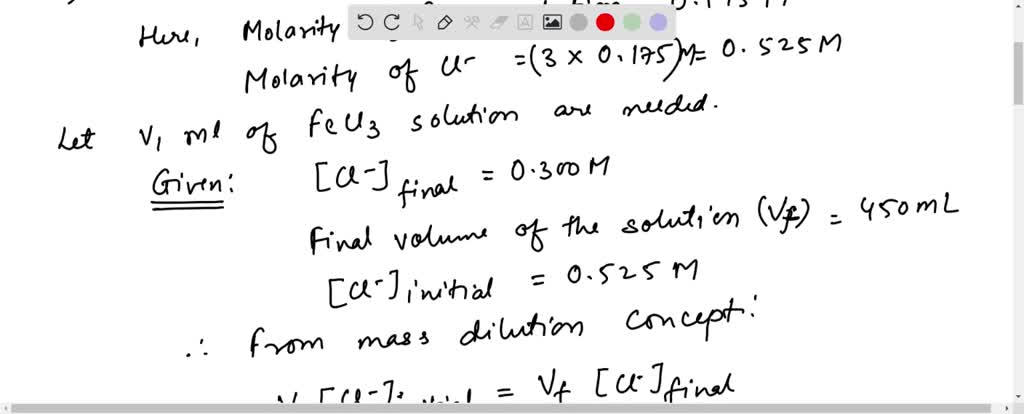 Here, Molarity
Molarity of Cl- = (3 x 0.175)M = 0.525 M
Let V₁ ml of FeCl3 solution are needed.
Given: [Cl-] final = 0.300 M
Final volume of the solution (Vf) = 450 mL
[Cl-] initial = 0.525 M
∴ from mass dilution concept:
= Vf [Cl-] final